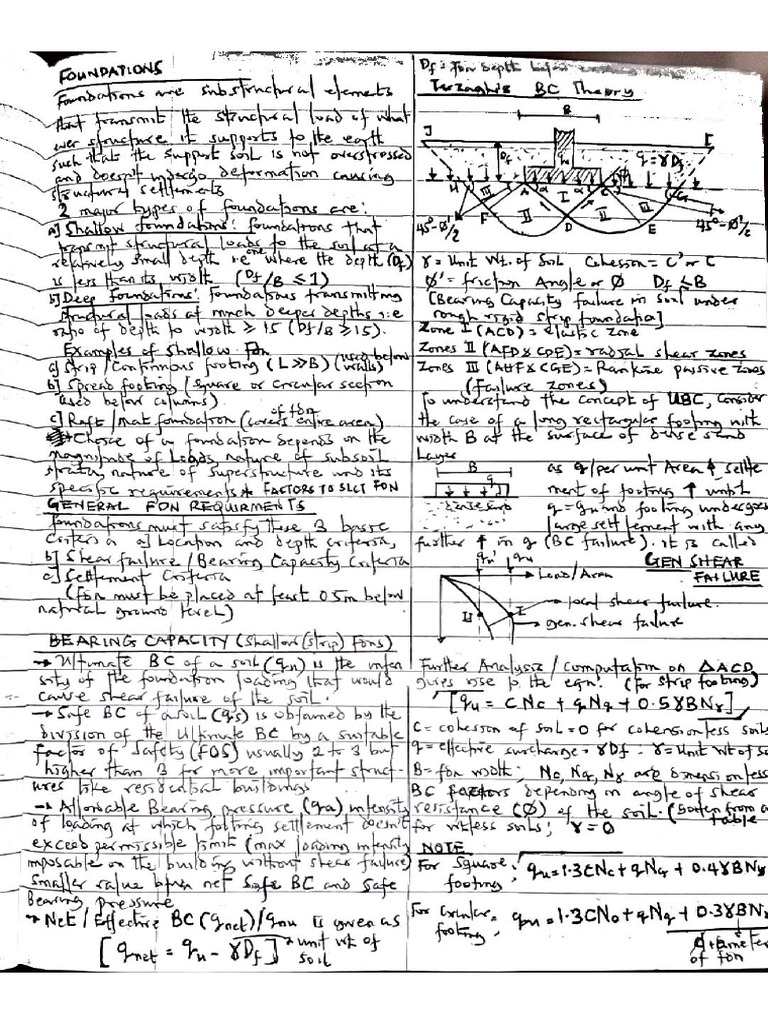 FOUNDATIONS
Foundations are substructural elements
that transmit the structural load of what
ever structure it supports to the earth
such that the support soil is not overstressed
and doesn't undergo deformation causing
structural settlements
2 major types of foundations are:
a) Shallow foundations: foundations that
transmit structural loads to the soil at a
relatively small depth i.e one where the depth (Df)
is less than its width (Df/B ≤ 1)
b) Deep Foundations: foundations transmitting
structural loads at much deeper depths i.e
ratio of depth to width ≥ 15 (Df/B ≥ 15).
Examples of Shallow Fdn
a) Strip/Continuous footing (L >> B) (used below walls)
b) Spread footing/Square or circular section
used below columns)
c) Raft/mat foundation (covers entire area) of fdn
Choice of a foundation depends on the
magnitude of Loads, nature of subsoil
strata, nature of superstructure and its
specific requirements * FACTORS TO SLCT FDN
GENERAL FDN REQUIRMENTS
foundations must satisfy these 3 basic
Criteria a) Location and depth criteria,
b) Shear failure/Bearing Capacity Criteria
c) Settlement Criteria
(fdn must be placed at least 0.5m below
natural ground level)
BEARING CAPACITY (Shallow (strip) Fdns)
→ Ultimate BC of a soil (qu) is the inten
sity of the foundation loading that would
cause shear failure of the soil.
→ Safe BC of a soil (qs) is obtained by the
division of the Ultimate BC by a suitable
factor of Safety (FOS) usually 2 to 3 but
higher than 3 for more important struct-
ures like residential buildings
→ Allowable Bearing pressure (qa) intensity
of loading at which footing settlement doesn't
exceed permissible limit (max loading intensity
imposable on the building without shear failure)
Smaller value btwn net Safe BC and Safe
Bearing pressure
→ Net/Effective BC (qnet)/qnu is given as
[qnet = qu - γDf] → unit wt of
soil
Df = Fdn Depth
Terzaghi's BC Theory
B
J
I
Df
q = γDf
H III A α I α C G
F II D II E III
45°-Ø'/2
45°-Ø'/2
γ = Unit Wt. of Soil Cohesion = C' or C
Ø' = friction Angle or Ø Df ≤ B
[Bearing Capacity failure in soil under
rough rigid strip foundation]
Zone I (ACD) = elastic zone
Zones II (AFD & CDE) = radial shear zones
Zones III (AHF & CGE) = Rankine passive zones
(failure zones)
To understand the concept of UBC, consider
the case of a long rectangular footing with
width B at the surface of dense sand
layer
B
q
dense sand
as q/per unit Area ↑ settle
ment of footing ↑ until
q = qu and footing undergoes
large settlement with any
further ↑ in q (BC failure). it is called
GEN SHEAR
FAILURE
qu' qu
→ Load/Area
II
I
local shear failure.
gen. shear failure
Further Analysis/Computation on ΔACD
gives rise to the eqn: (for strip footing)
[qu = CNc + qNq + 0.5γBNγ]
C = cohesion of soil = 0 for cohesionless soils
q = effective surcharge = γDf. γ = Unit wt of soil
B = fdn width: Nc, Nq, Nγ are dimensionless
BC factors depending on angle of shear
resistance (Ø) of the soil. (gotten from a table
for wtless soils; γ = 0
NOTE
For Square footing: qu = 1.3CNc + qNq + 0.4γBNγ
For circular footing: qu = 1.3CNc + qNq + 0.3γBNγ
diameter
of fdn